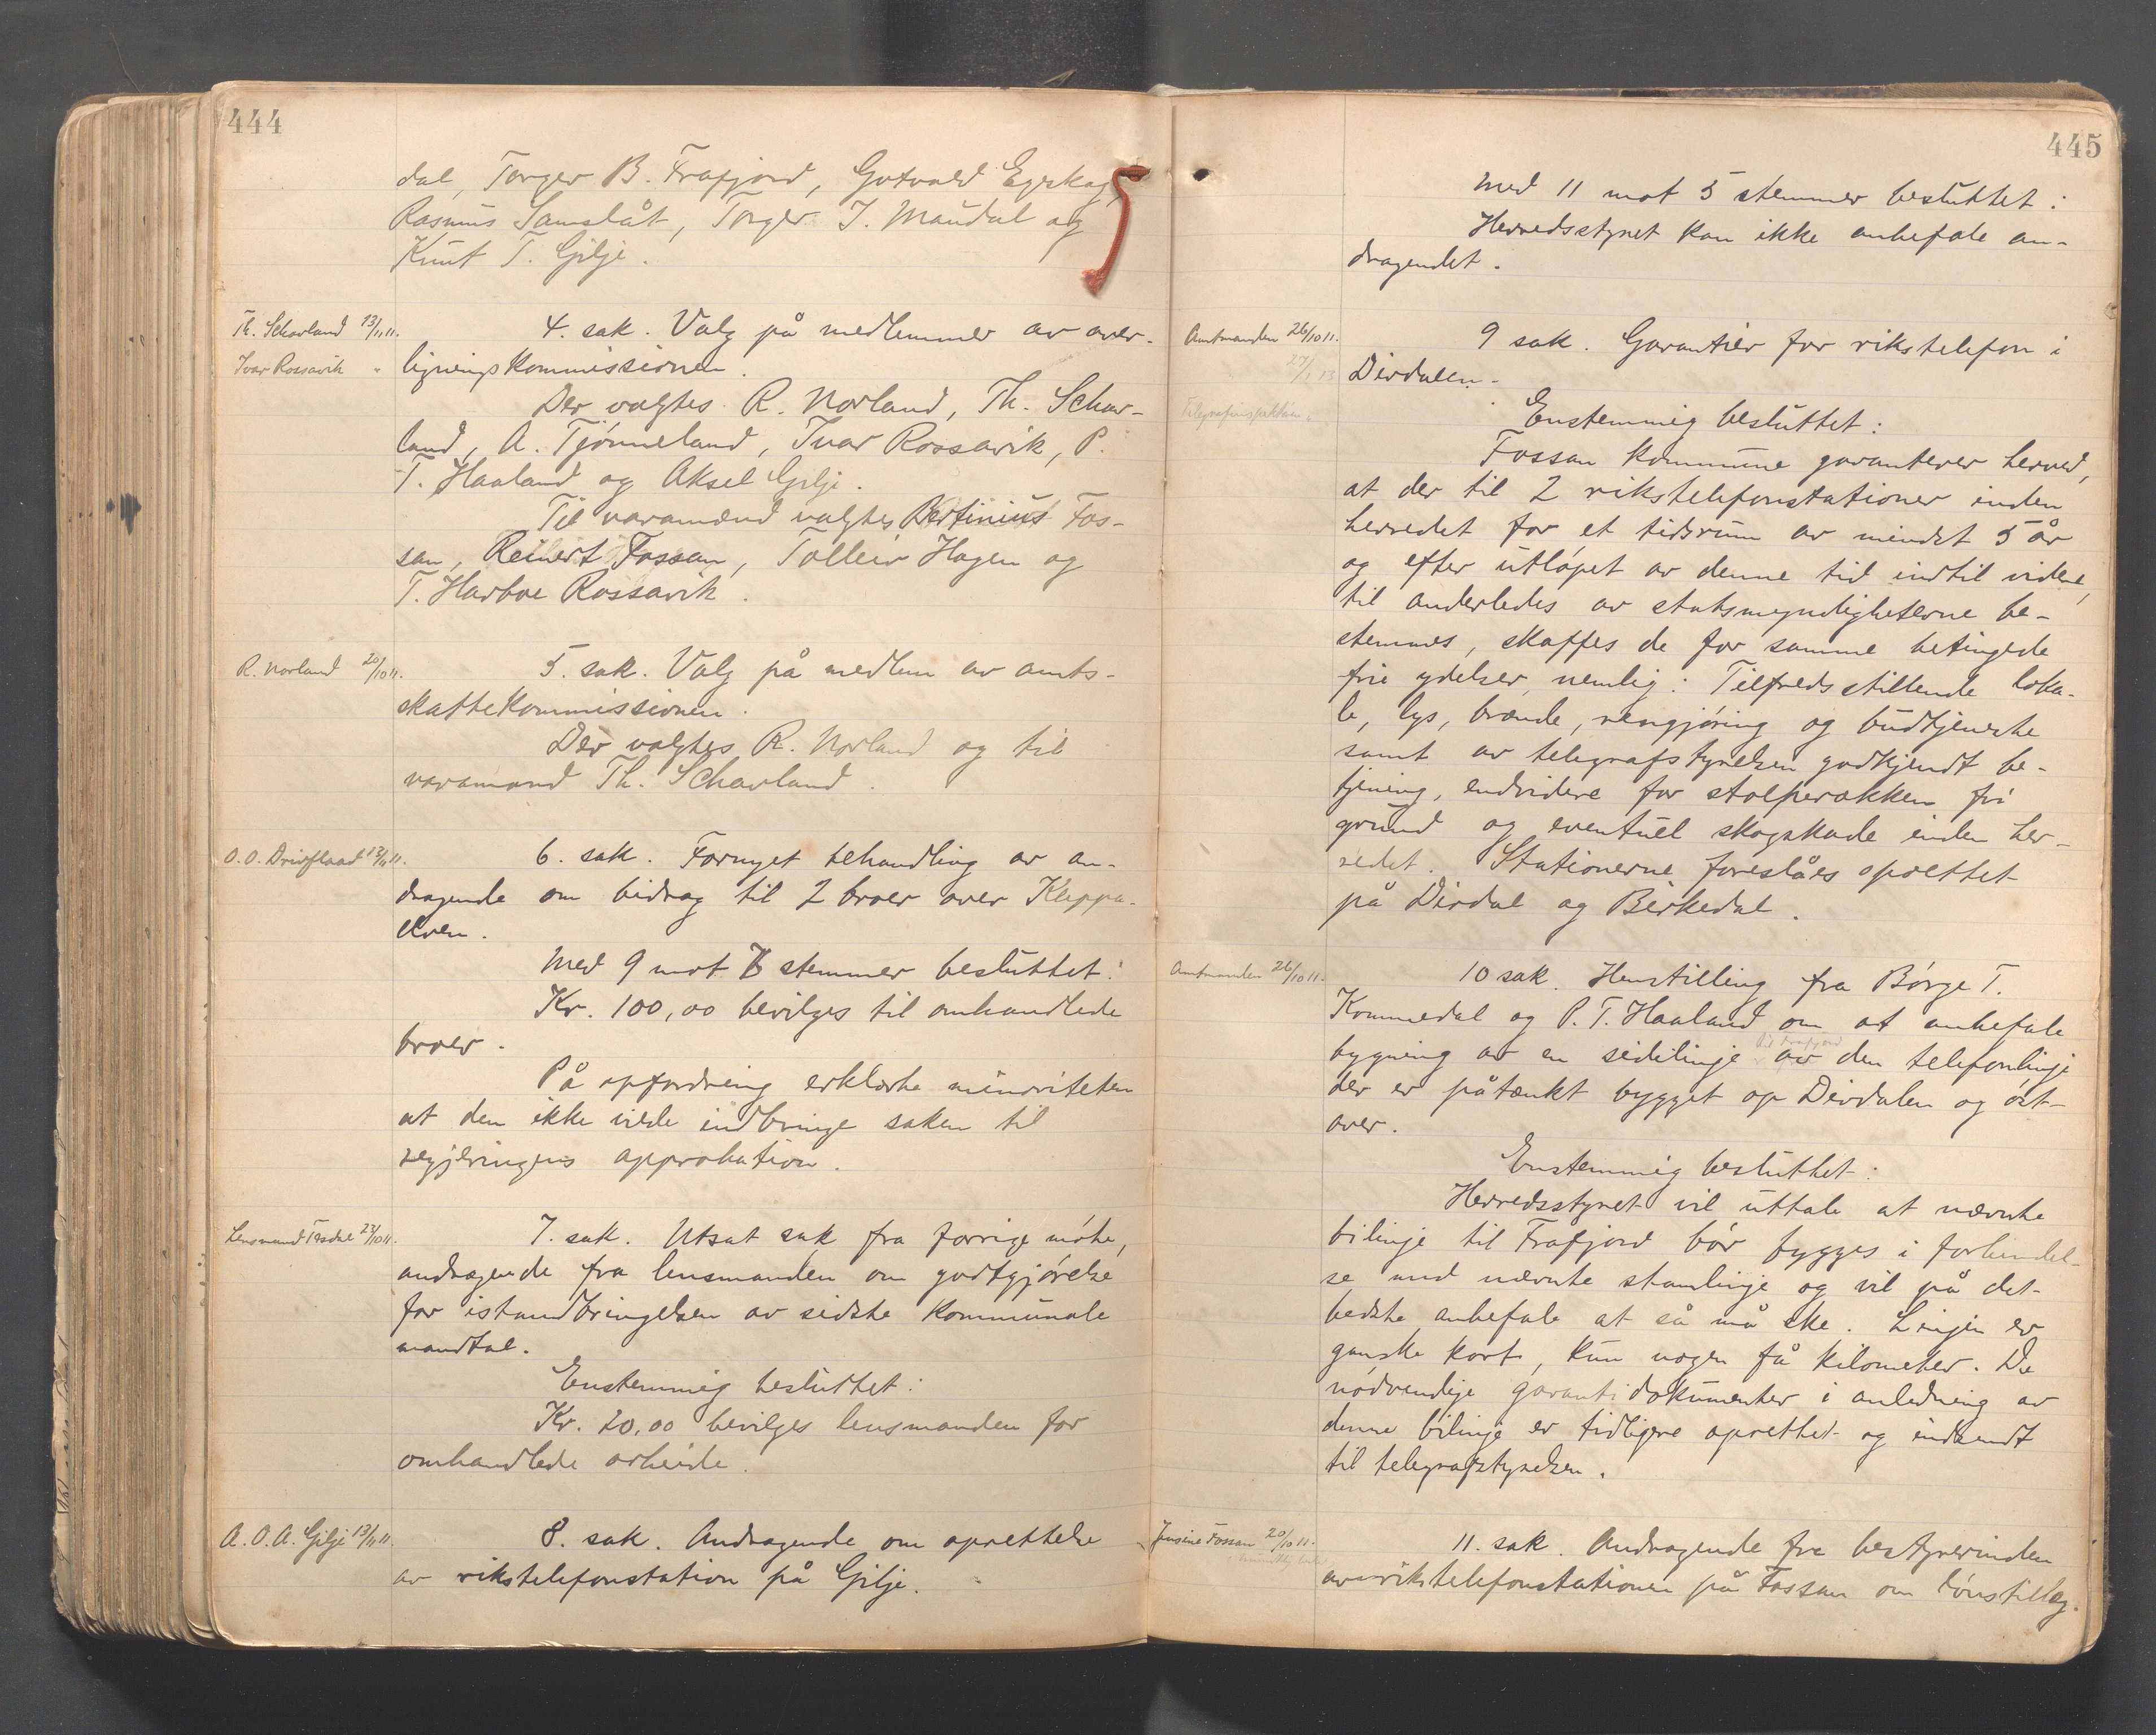 444
dal, Torger B. Frafjord, Gotvald Egeskog,
Rasmus Samslåt, Torger I. Maudal og
Knut T. Gilje.
Th. Scharland 13/11 11.
Ivar Rossavik "
4. sak. Valg på medlemmer av over-
ligningskommissionen.
Der valgtes R. Norland, Th. Schar-
land, A. Tjönneland, Ivar Rossavik, P.
T. Haaland og Aksel Gilje.
Til varamænd valgtes Bertinius Fos-
san, Reinert Fossan, Tolleiv Hagen og
T. Harboe Rossavik.
R. Norland 20/10 11.
5. sak. Valg på medlem av amts-
skattekommissionen.
Der valgtes R. Norland og til
varamand Th. Scharland.
O. O. Drivflaad 13/11 11.
6. sak. Fornyet behandling av an-
dragende om bidrag til 2 broer over Kleppa-
elven.
Med 9 mot stemmer besluttet:
Kr. 100,00 bevilges til omhandlede
broer.
På opfordring erklærte minoriteten
at den ikke vilde indbringe saken til
regjeringens approbation.
Lensmand Tesdal 23/10 11.
7. sak. Utsat sak fra forrige möte,
andragende fra lensmanden om godtgjörelse
for istandbringelsen av sidste kommunale
mandtal.
Enstemmig besluttet:
Kr. 20,00 bevilges lensmanden for
omhandlede arbeide.
A. O. A. Gilje 13/11 11.
8. sak. Andragende om oprettelse
av rikstelefonstation på Gilje.
445
Med 11 mot 5 stemmer besluttet:
Herredsstyret kan ikke anbefale an-
dragendet.
Amtmanden 26/10 11.
27/1 13
Telegrafinspektören
9 sak. Garantier for rikstelefon i
Dirdalen.
Enstemmig besluttet:
Fossan kommune garanterer herved,
at der til 2 rikstelefonstationer inden
herredet for et tidsrum av mindst 5 år
og efter utlöpet av denne tid indtil videre,
til anderledes av statsmyndigheterne be-
stemmes, skaffes de for samme betingede
frie ydelser, nemlig: Tilfredsstillende loka-
le, lys, brænde, rengjöring og budtjeneste
samt av telegrafstyrelsen godkjendt be-
tjening, endvidere for stolperækken fri
grund og eventuel skogskade inden her-
redet. Stationerne foreslåes oprettet
på Dirdal og Birkedal.
Amtmanden 26/10 11.
10 sak. Henstilling fra Börge T.
Kommedal og P. T. Haaland om at anbefale
til Frafjord
bygning av en sidelinje av den telefonlinje
der er påtænkt bygget op Dirdalen og öst-
over.
Enstemmig besluttet:
Herredsstyret vil uttale at nævnte
bilinje til Frafjord bör bygges i forbindel-
se med nævnte stamlinje og vil på det
bedste anbefale at så må ske. Linjen er
ganske kort, kun nogen få kilometer. De
nödvendige garantidokumenter i anledning av
denne bilinje er tidligere oprettet og indsendt
til telegrafstyrelsen.
Jensine Fossan 20/10 11.
11. sak. Andragende fra bestyrerinden
av rikstelefonstationen på Fossan om lönstillæg.